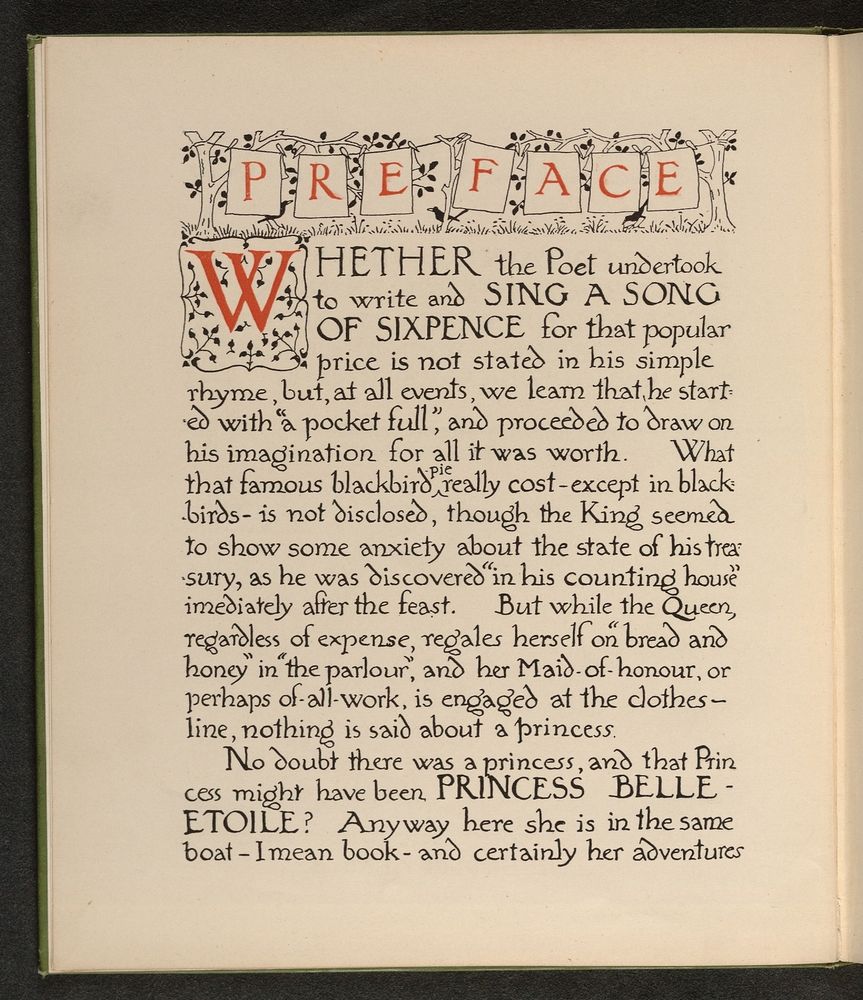 PREFACE
WHETHER the Poet undertook
to write and SING A SONG
OF SIXPENCE for that popular
price is not stated in his simple
rhyme, but, at all events, we learn that, he start-
-ed with "a pocket full", and proceeded to draw on
his imagination for all it was worth. What
that famous blackbird pie really cost - except in black-
-birds - is not disclosed, though the King seemed
to show some anxiety about the state of his trea-
-sury, as he was discovered "in his counting house"
imediately after the feast. But while the Queen,
regardless of expense, regales herself on "bread and
honey" in "the parlour", and her Maid-of-honour, or
perhaps of-all-work, is engaged at the clothes-
line, nothing is said about a princess.
No doubt there was a princess, and that Prin
cess might have been PRINCESS BELLE-
ETOILE? Anyway here she is in the same
boat - I mean book - and certainly her adventures